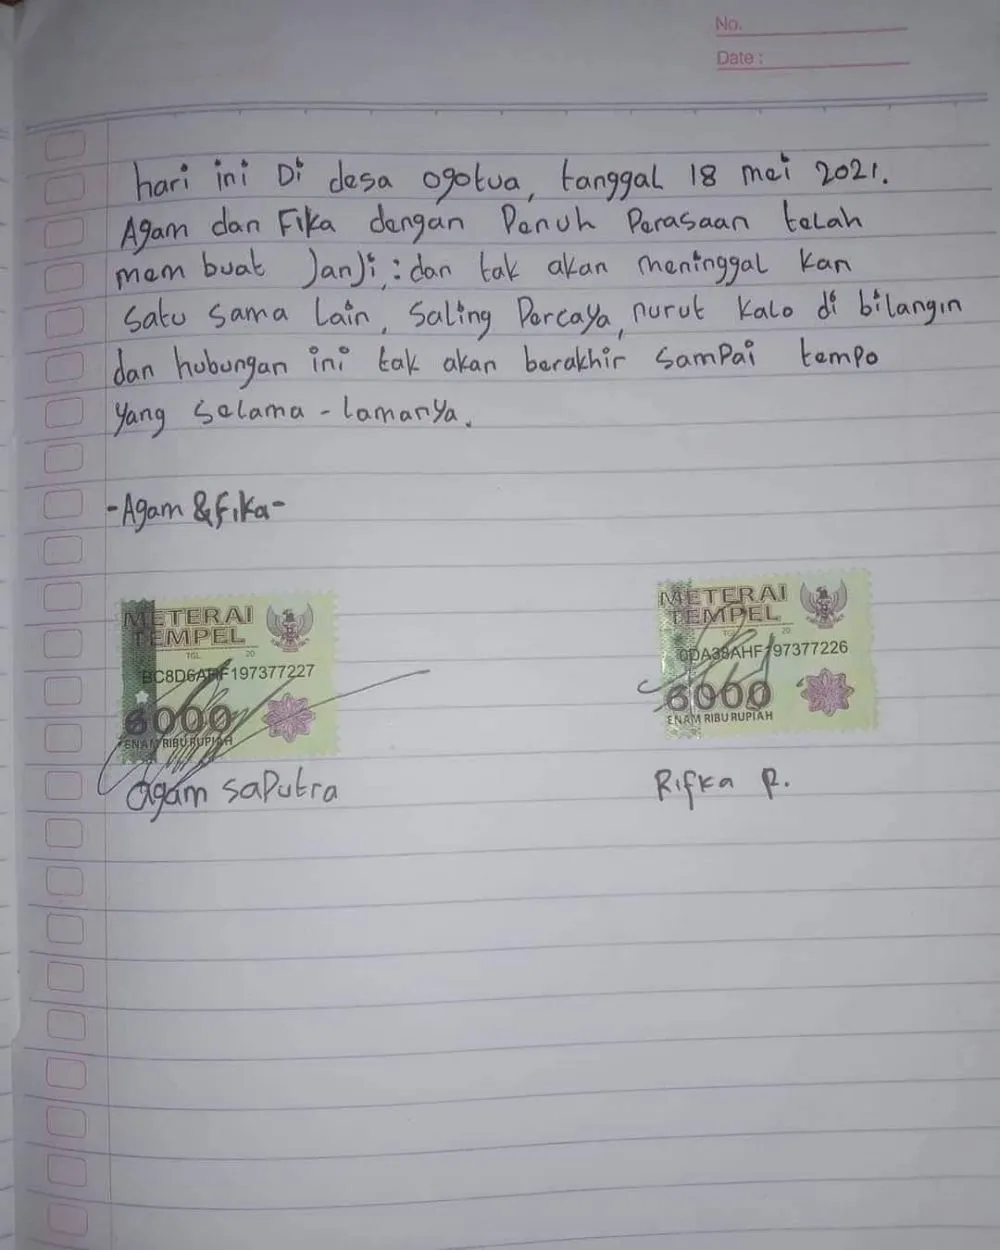 No.
Date :
hari ini Di desa ogotua, tanggal 18 mei 2021.
Agam dan Fika dengan Penuh Perasaan telah
mem buat JanJi,: dan tak akan meninggal kan
satu sama lain, Saling Percaya, nurut kalo di bilangin
dan hubungan ini tak akan berakhir SamPai tempo
yang selama - lamanya.
-Agam & Fika-
METERAI
TEMPEL
TGL 20
BC8D6AHF197377227
6000
ENAM RIBU RUPIAH
METERAI
TEMPEL
TGL 20
0DA39AHF197377226
6000
ENAM RIBU RUPIAH
agam saPutra
Rifka R.